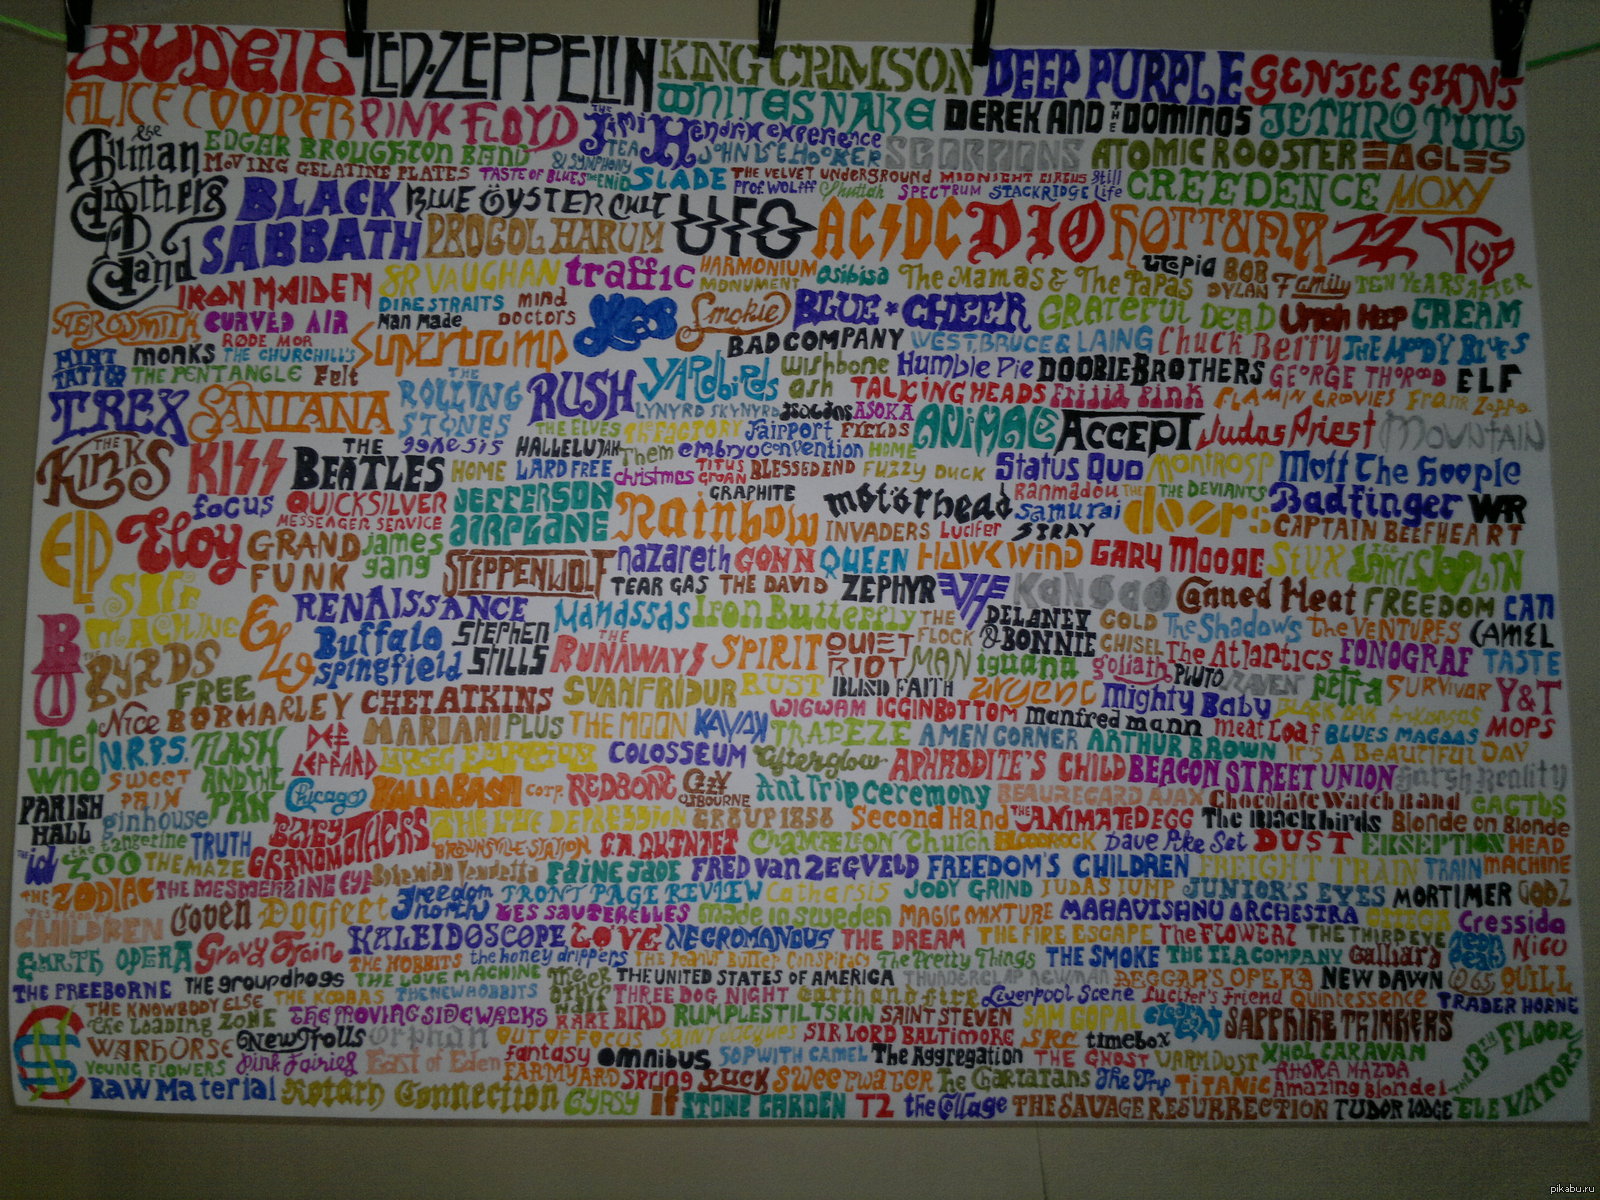 BUDGIE LED-ZEPPELIN KING CRIMSON DEEP PURPLE GENTLE GIANT
ALICE COOPER PINK FLOYD THE JIMI Hendrix experience WHITESNAKE DEREK AND THE DOMINOS JETHRO TULL
the Allman Brothers Band EDGAR BROUGHTON BAND TEA & SYMPHONY JOHN LEE HOOKER SCORPIONS ATOMIC ROOSTER EAGLES
MOVING GELATINE PLATES TASTE OF BLUES THE ENID SLADE THE VELVET UNDERGROUND MIDNIGHT CIRCUS Still CREEDENCE MOXY
Prof. WOLFFF SPECTRUM STACKRIDGE Life
BLACK SABBATH BLUE ÖYSTER CULT PROCOL HARUM UFO AC/DC DIO HOT TUNA ZZ TOP
IRON MAIDEN SR VAUGHAN traffic HARMONIUM MONUMENT osibisa The Mamas & The Papas utopia BOB DYLAN Family TEN YEARS AFTER
AEROSMITH CURVED AIR DIRE STRAITS mind DOCTORS Yes Smokie BLUE * CHEER GRATEFUL DEAD Uriah Heep CREAM
Man Made RØDE MOR Supertramp BAD COMPANY WEST, BRUCE & LAING Chuck Berry THE MOODY BLUES
MINT TATTOO MONKS THE CHURCHILL'S THE PENTANGLE Felt YARDbirds Wishbone ash Humble Pie DOOBIE BROTHERS GEORGE THOROGOOD ELF
T.REX SANTANA THE ROLLING STONES RUSH TALKING HEADS Frijid Pink FLAMIN GROOVIES Frank Zappa
LYNYRD SKYNYRD ASOKA ANIMALS ACCEPT Judas Priest MOUNTAIN
THE ELVES THE FACTORY Fairport convention FIELDS
THE KINKS KISS THE BEATLES genesis HALLELUJAH Them embryo HOME Status Quo MONTROSE Mott The Hoople
HOME LARD FREE christmas TITUS GROAN BLESSED END FUZZY DUCK
focus QUICKSILVER MESSENGER SERVICE JEFFERSON AIRPLANE Rainbow GRAPHITE motörhead Ranmadou THE DEVIANTS Badfinger WAR
INVADERS Lucifer samurai STRAY THE doors CAPTAIN BEEFHEART
ELP Eloy GRAND FUNK james gang STEPPENWOLF nazareth GONN QUEEN HAWKWIND GARY MOORE STYX JANIS JOPLIN
TEAR GAS THE DAVID ZEPHYR VH Kansas Canned Heat FREEDOM CAN
Soft MACHINE RENAISSANCE Mandassas Iron Butterfly THE FLOCK DELANEY & BONNIE COLD CHISEL The Shadows The VENTURES CAMEL
THE BYRDS ELO Buffalo springfield STEPHEN STILLS THE RUNAWAYS SPIRIT QUIET RIOT MAN iguana goliath The Atlantics FONOGRAF TASTE
FREE CHET ATKINS SVANFRIDUR RUST BLIND FAITH argent Mighty Baby PLUTO RAVEN petra SURVIVOR Y&T
Nice BOB MARLEY MARIANI PLUS THE MOON KAYAK WIGWAM IGGINBOTTOM manfred mann meat Loaf BLUES MAGOOS MOPS
The Who N.R.P.S. FLASH AND THE PAN DEF LEPPARD COLOSSEUM TRAPEZE AMEN CORNER ARTHUR BROWN IT'S A BeAUTIFUL DAY
SWEET PAIN Afterglow APHRODITE'S CHILD BEACON STREET UNION Harsh Reality
PARISH HALL ginhouse Chicago KALLABASH CORP. REDBONE OZZY OSBOURNE Ant Trip ceremony BEAUREGARD AJAX Chocolate Watch Band CACTUS
BABY GRANDMOTHERS THE LOVE DEPRESSION GROUP 1850 Second Hand THE ANIMATED EGG The Blackbirds Blonde on Blonde
THE id The tangerine ZOO TRUTH THE MAZE BROWNSVILLE-STATION C.A. QUINTET CHAMAELEON Church BLOODROCK Dave Pike Set DUST EKSEPTION HEAD MACHINE
Bohemian Vendetta FAINE JADE FRED van ZEGVELD FREEDOM'S CHILDREN FREIGHT TRAIN TRAIN
THE ZODIAC THE MESMERIZING EYE Freedom north FRONT PAGE REVIEW Catharsis JODY GRIND JUDAS JUMP JUNIOR'S EYES MORTIMER GODZ
YESTERDAY'S CHILDREN Coven Dogfeet LES SAUTERELLES made in sweden MAGIC MIXTURE MAHAVISHNU ORCHESTRA OMEGA Cressida
EARTH OPERA Gravy Train KALEIDOSCOPE LOVE NECROMANDUS THE DREAM THE FIRE ESCAPE The FLOWERZ THE THIRD EYE NICO
THE HOBBITS the honey drippers The Peanut Butter Conspiracy The Pretty Things THE SMOKE THE TEA COMPANY Galliard
THE FREEBORNE THE groundhogs THE LOVE MACHINE THE UNITED STATES OF AMERICA THUNDERCLAP NEWMAN BEGGAR'S OPERA NEW DAWN QUILL
THE KNOWBODY ELSE THE KOOBAS THE NEW HOBBITS THE OTHER HALF THREE DOG NIGHT earth and fire Liverpool Scene Lucifer's Friend Quintessence TRADER HORNE
The Loading ZONE THE MOVING SIDEWALKS RARE BIRD RUMPLESTILTSKIN SAINT STEVEN SAM GOPAL CLEAR LIGHT SAPPHIRE THINKERS
WARHORSE New Trolls orphan OUT OF FOCUS SAINT JACQUES SIR LORD BALTIMORE SRC timebox THE 13TH FLOOR ELEVATORS
YOUNG FLOWERS Pink Fairies East of Eden fantasy omnibus SOPWITH CAMEL The Aggregation THE GHOST WARM DUST XHOL CARAVAN
FARMYARD SPRING PUCK SWEETWATER The Charlatans The Trip TITANIC AHORA MAZDA Amazing Blondel
RAW Material Rotary Connection GYPSY IF STONE GARDEN T2 the Collage THE SAVAGE RESURRECTION TUDOR LODGE
pikabu.ru